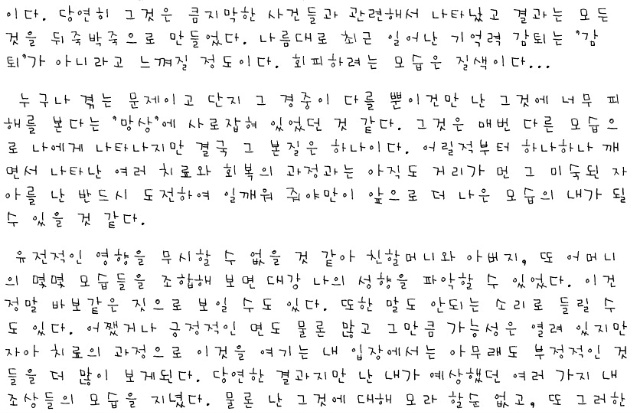 이다. 당연히 그것은 큼지막한 사건들과 관련해서 나타났고 결과는 모든
것을 뒤죽박죽으로 만들었다. 나름대로 최근 일어난 기억력 감퇴는 "감
퇴"가 아니라고 느껴질 정도이다. 회피하려는 모습은 질색이다...
누구나 겪는 문제이고 단지 그 경중이 다를 뿐이건만 난 그것에 너무 피
해를 본다는 "망상"에 사로잡혀 있었던 것 같다. 그것은 매번 다른 모습으
로 나에게 나타나지만 결국 그 본질은 하나이다. 어릴적부터 하나하나 깨
면서 나타난 여러 치료와 회복의 과정과는 아직도 거리가 먼 그 미숙된 자
아를 난 반드시 도전하여 일깨워 줘야만이 앞으로 더 나은 모습의 내가 될
수 있을 것 같다.
유전적인 영향을 무시할 수 없을 것 같아 친할머니와 아버지, 또 어머니
의 몇몇 모습들을 조합해 보면 대강 나의 성향을 파악할 수 있었다. 이건
정말 바보같은 짓으로 보일 수도 있다. 또한 말도 안되는 소리로 들릴 수
도 있다. 어쨌거나 긍정적인 면도 물론 많고 그만큼 가능성은 열려 있지만
자아 치료의 과정으로 이것을 여기는 내 입장에서는 아무래도 부정적인 것
들을 더 많이 보게된다. 당연한 결과지만 난 내가 예상했던 여러 가지 내
조상들의 모습을 지녔다. 물론 난 그것에 대해 모라 할순 없고, 또 그러한